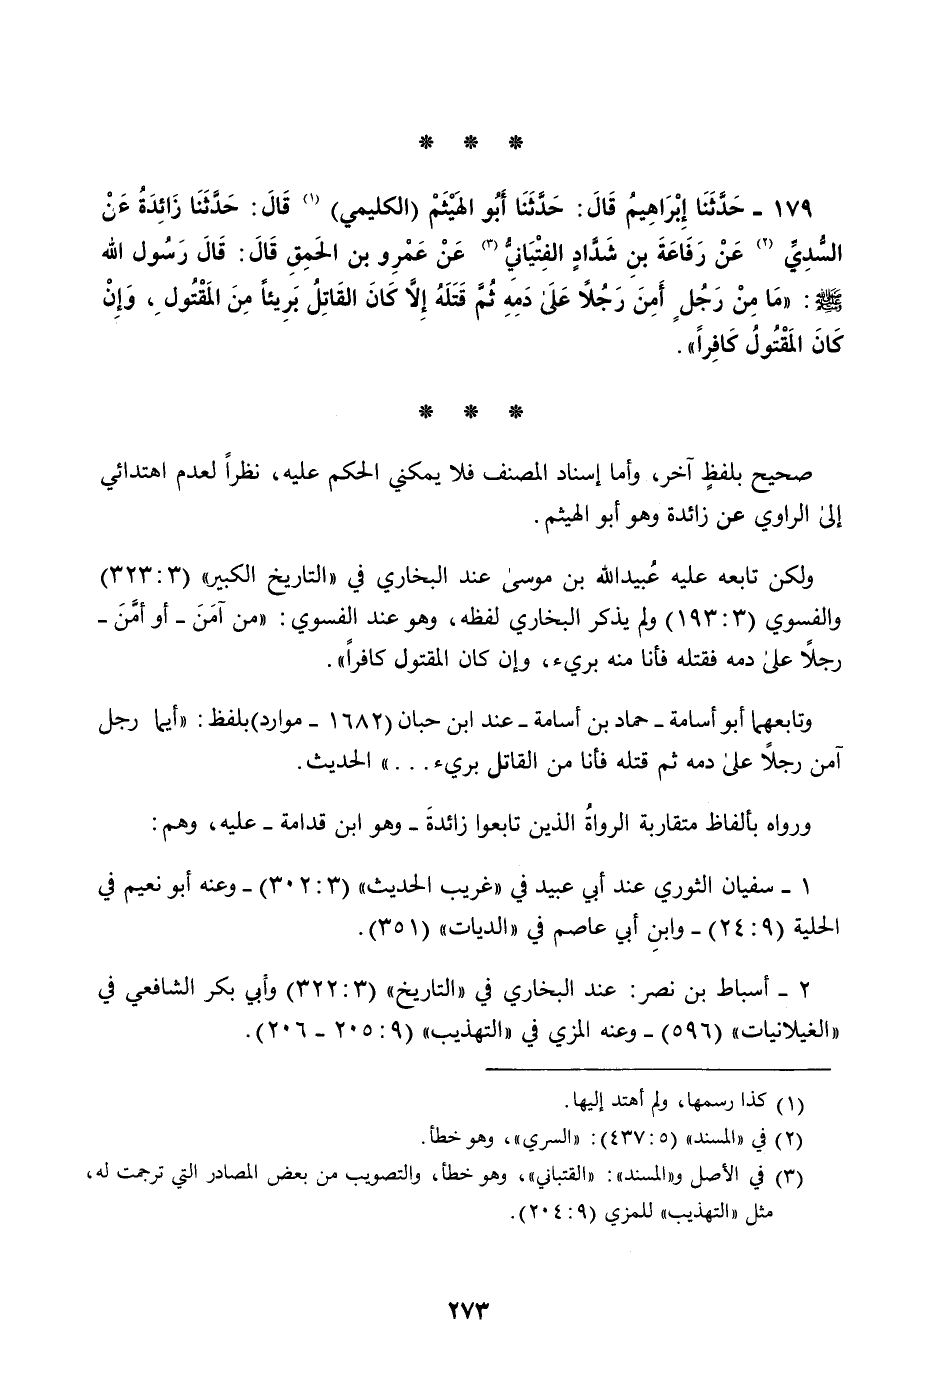 * * *
١٧٩ ـ حَدَّثَنَا إِبْرَاهِيمُ قَالَ: حَدَّثَنَا أَبُو الهَيْثَمْ (الكليمي) (١) قَالَ: حَدَّثَنَا زَائِدَةُ عَنْ
السُّدِيِّ (٢) عَنْ رَفَاعَةَ بنِ شَدَّادٍ الفِتْيَانِيُّ (٣) عَنْ عَمْرِو بن الحَمِقِ قَالَ: قَالَ رَسُول الله
ﷺ: «مَا مِنْ رَجُلٍ أَمِنَ رَجُلًا عَلَىٰ دَمِهِ ثُمَّ قَتَلَهُ إِلَّا كَانَ القَاتِلُ بَرِيئاً مِنَ المَقْتُولِ، وَإِنْ
كَانَ المَقْتُولُ كَافِراً».
* * *
صحيح بلفظٍ آخر، وأما إسناد المصنف فلا يمكني الحكم عليه، نظراً لعدم اهتدائي
إلىٰ الراوي عن زائدة وهو أبو الهيثم.
ولكن تابعه عليه عُبيدالله بن موسىٰ عند البخاري في «التاريخ الكبير» (٣: ٣٢٣)
والفسوي (٣: ١٩٣) ولم يذكر البخاري لفظه، وهو عند الفسوي: «من آمَنَ ـ أو أمَّنَ ـ
رجلًا علىٰ دمه فقتله فأنا منه بريء، وإن كان المقتول كافراً».
وتابعهما أبو أسامة ـ حماد بن أسامة ـ عند ابن حبان (١٦٨٢ ـ موارد) بلفظ: «أيما رجل
آمن رجلًا علىٰ دمه ثم قتله فأنا من القاتل بريء...» الحديث.
ورواه بألفاظ متقاربة الرواةُ الذين تابعوا زائدةَ ـ وهو ابن قدامة ـ عليه، وهم:
١ ـ سفيان الثوري عند أبي عبيد في «غريب الحديث» (٣: ٣٠٢) ـ وعنه أبو نعيم في
الحلية (٩: ٢٤) ـ وابنِ أبي عاصم في «الديات» (٣٥١).
٢ ـ أسباط بن نصر: عند البخاري في «التاريخ» (٣: ٣٢٢) وأبي بكر الشافعي في
«الغيلانيات» (٥٩٦) ـ وعنه المزي في «التهذيب» (٩: ٢٠٥ ـ ٢٠٦).
(١) كذا رسمها، ولم أهتد إليها.
(٢) في «المسند» (٥: ٤٣٧): «السري»، وهو خطأ.
(٣) في الأصل و«المسند»: «القتباني»، وهو خطأ، والتصويب من بعض المصادر التي ترجمت له،
مثل «التهذيب» للمزي (٩: ٢٠٤).
٢٧٣